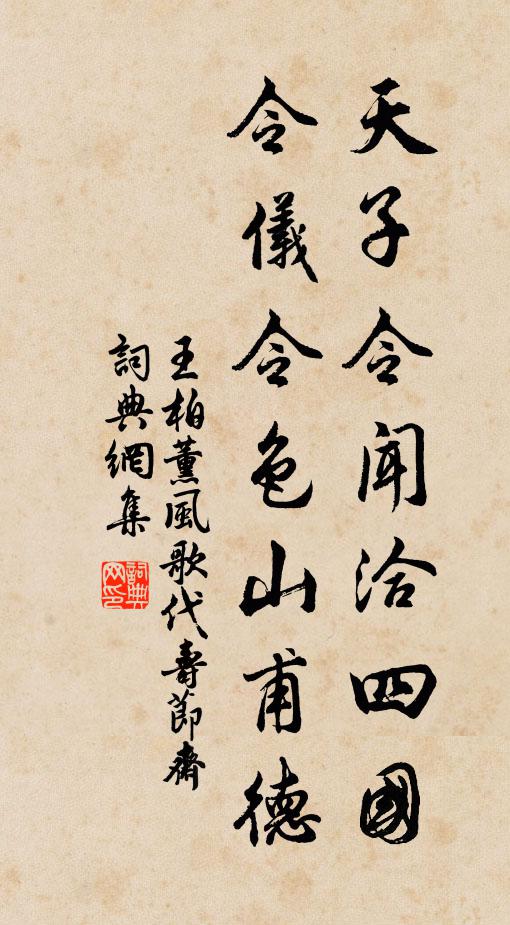 天子令闻洽四國
令儀令色山甫德
王柏薰風歌代壽節齋
詞典網集
詞典网印